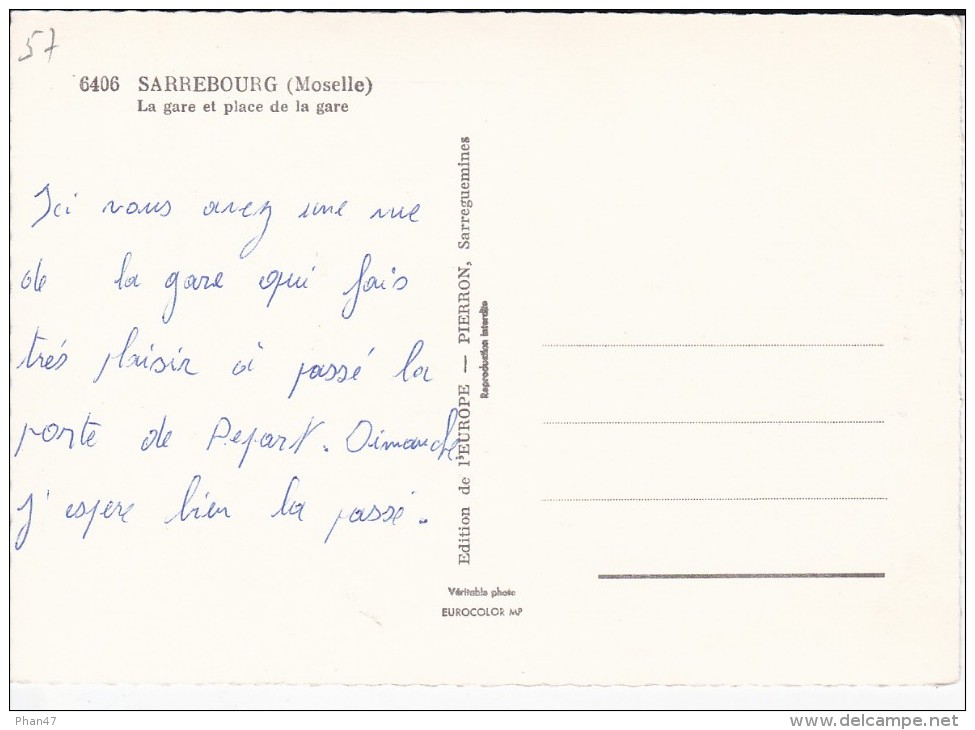 57
6406 SARREBOURG (Moselle)
La gare et place de la gare
Ici vous avez une vue
de la gare qui fais
très plaisir à passé la
porte de Depart. Dimanche
j'espere bien la passé.
Edition de l'EUROPE — PIERRON, Sarreguemines
Reproduction interdite
Véritable photo
EUROCOLOR MP
Phan47
www.delcampe.net